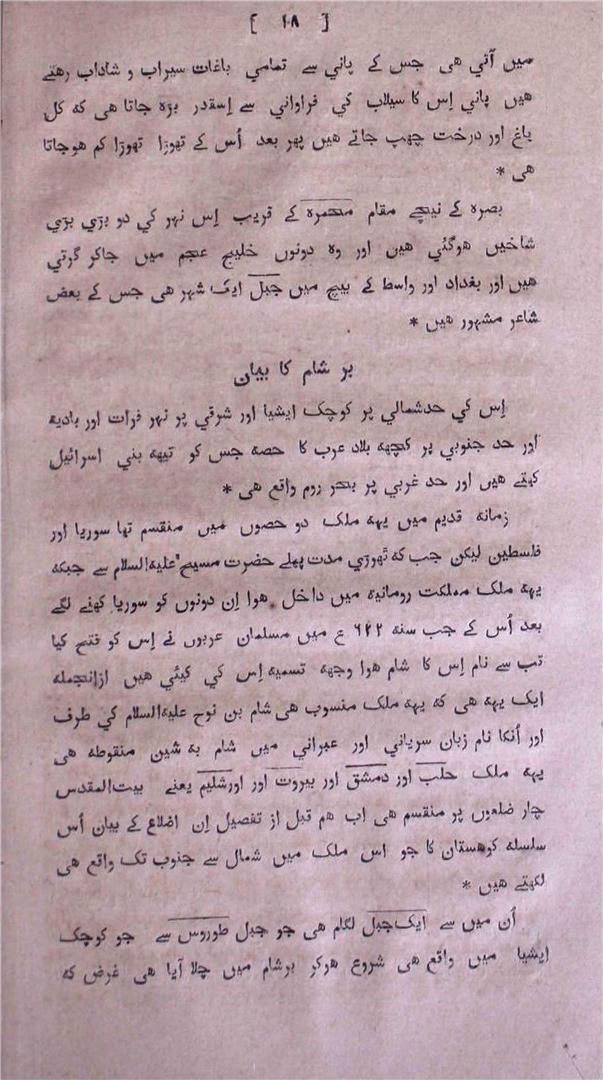 [ ١٠٨ ]
میں آتی هی جس کے پانی سے تمامی باغات سیراب و شاداب رهتے
هیں پانی اِس کا سیلاب کی فراوانی سے اِسقدر بڑہ جاتا هی که کل
باغ اور درخت چهپ جاتے هیں پهر بعد اُس کے تهوڑا تهوڑا کم هوجاتا
هی *
بصره کے نیچے مقام محمره کے قریب اِس نہر کی دو بڑی بڑی
شاخیں هوگئی هیں اور وه دونوں خلیج عجم میں جاکر گرتی
هیں اور بغداد اور واسط کے بیچ میں جبل ایک شہر هی جس کے بعض
شاعر مشہور هیں *
بر شام کا بیان
اِس کی حدشمالی پر کوچک ایشیا اور شرقی پر نہر فرات اور بادیه
اور حد جنوبی پر کچهه بلاد عرب کا حصه جس کو تیهه بنی اسرائیل
کہتے هیں اور حد غربی پر بحر روم واقع هی *
زمانه قدیم میں یهه ملک دو حصوں میں منقسم تها سوریا اور
فلسطین لیکن جب که تهوڑی مدت پہلے حضرت مسیح علیه‌السلام سے جبکه
یهه ملک مملکت رومانیه میں داخل هوا اِن دونوں کو سوریا کہنے لگے
بعد اُس کے جب سنه ٦٢٢ ع میں مسلمان عربوں نے اِس کو فتح کیا
تب سے نام اِس کا شام هوا وجهه تسمیه اِس کی کیئی هیں ازانجمله
ایک یهه هی که یهه ملک منسوب هی شام بن نوح علیه‌السلام کی طرف
اور اُنکا نام زبان سریانی اور عبرانی میں شام به شین منقوطه هی
یهه ملک حلب اور دمشق اور بیروت اور اورشلیم یعنے بیت‌المقدس
چار ضلعوں پر منقسم هی اب هم قبل از تفصیل اِن اضلاع کے بیان اُس
سلسله کوهستان کا جو اس ملک میں شمال سے جنوب تک واقع هی
لکهتے هیں *
اُن میں سے ایک جبل لگام هی جو جبل طوروس سے جو کوچک
ایشیا میں واقع هی شروع هوکر برشام میں چلا آیا هی غرض که